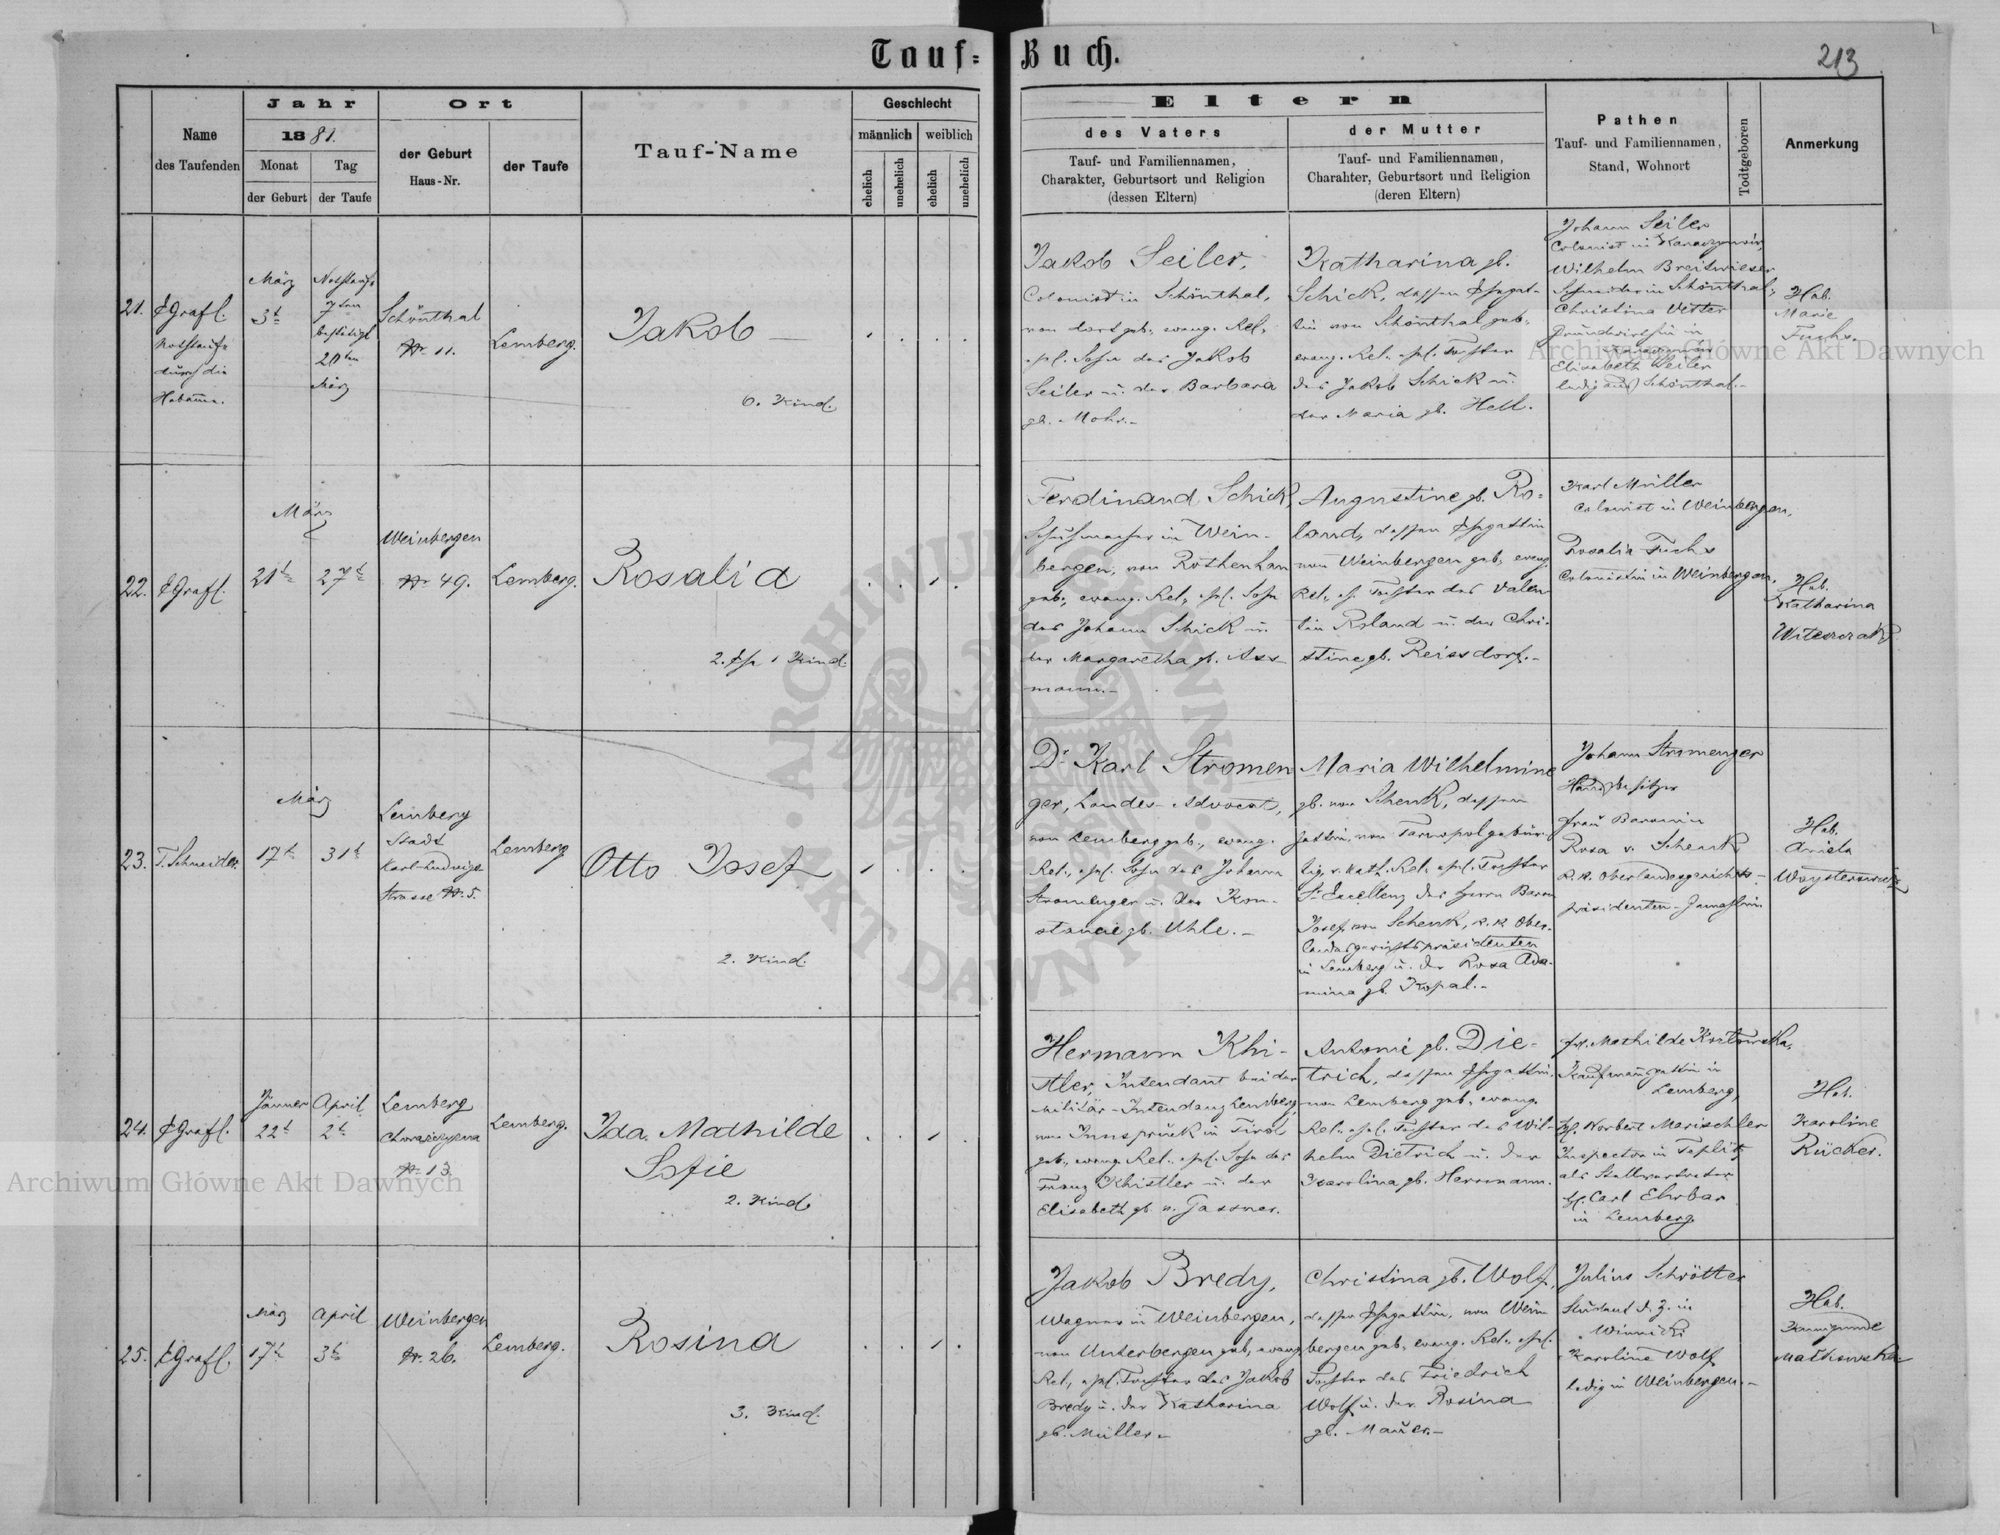 Tauf- Buch.
213
Name
des Taufenden
Jahr
1881.
Monat
der Geburt
Tag
der Taufe
Ort
der Geburt
Haus-Nr.
der Taufe
Tauf-Name
Geschlecht
männlich
weiblich
ehelich
unehelich
ehelich
unehelich
Eltern
des Vaters
Tauf- und Familiennamen,
Charakter, Geburtsort und Religion
(dessen Eltern)
der Mutter
Tauf- und Familiennamen,
Charahter, Geburtsort und Religion
(deren Eltern)
Pathen
Tauf- und Familiennamen,
Stand, Wohnort
Todtgeboren
Anmerkung
21.
Grafl.
Nothtaufe
durch die
Hebamme.
März
3t
Nothtaufe
7ten
bestätigt
20ten
März
Schönthal
Nr. 11.
Lemberg.
Jakob
6. Kind.
Jakob Seiler,
Colonist in Schönthal,
von dort geb., evang. Rel.,
ehl. Sohn des Jakob
Seiler u. der Barbara
gb. Mohr.-
Katharina gb.
Schick, dessen Ehegat-
tin von Schönthal geb.,
evang. Rel. ehl. Tochter
des Jakob Schick u.
der Maria gb. Hell.
Johann Seiler
Colonist in
Wilhelm Breitwieser
Schneider in Schönthal,
Christina Vetter
Grundwirthin in
Elisabeth Weiler
ledig aus Schönthal.-
Heb.
Marie
Fuchs.
22.
Grafl.
März
21t
27t
Weinbergen
Nr. 49.
Lemberg.
Rosalia
2. Ehe 1 Kind.
Ferdinand Schick,
Schuhmacher in Wein-
bergen, von Rothenhan
geb., evang. Rel., ehl. Sohn
des Johann Schick u.
der Margaretha gb. Ass-
mann.-
Augustine gb. Ro-
land, dessen Ehegattin
von Weinbergen geb., evang.
Rel., eh. Tochter des Valen-
tin Roland u. der Chri-
stine gb. Reissdorf.-
Karl Müller
Colonist in Weinbergen,
Rosalia Fuchs
Colonistin in Weinbergen,
Heb.
Katharina
23.
T. Schneider.
März
17t
31t
Lemberg
Stadt
Karl-Ludwigs-
Strasse Nr. 5.
Lemberg
Otto Josef
2. Kind.
Dr Karl Stromen
ger, Landes-Advocat,
von Lemberg geb., evang.
Rel., ehl. Sohn des Johann
Stromenger u. der Kon-
stancie gb. Uhle.-
Maria Wilhelmine
gb. von Schenk, dessen
Gattin, von Tarnopol gebür-
tig, r. kath. Rel. ehl. Tochter
Sr Excellenz des Herrn Baron
Josef von Schenk, k.k. Ober-
landesgerichtspräsidenten
in Lemberg u. der Rosa Ada-
mina gb. Kopal.-
Johann Stromenger
Hausbesitzer
Frau Baronin
Rosa v. Schenk
k.k. Oberlandesgerichts-
präsidenten-Gemahlin
Heb.
Aniela
24.
Grafl.
Jänner
22t
April
2t
Lemberg
Nr. 13.
Lemberg.
Ida Mathilde
Sofie
2. Kind.
Hermann Khi-
stler, Intendant bei der
Militär-Intendanz Lemberg,
von Innspruck in Tirol
geb., evang. Rel., ehl. Sohn des
Franz Khistler u. der
Elisabeth gb. v. Gassner.
Antonie gb. Die-
trich, dessen Ehegattin,
von Lemberg geb., evang.
Rel., ehl. Tochter des Wil-
helm Dietrich u. der
Karolina gb. Herrmann.
Fr. Mathilde
Kaufmannsgattin in
Lemberg,
H. Norbert Marischler
Inspector in Teplitz
als Stellvertreter
H. Carl Ehrbar
in Lemberg
Heb.
Karoline
Rücker.
25.
Grafl.
März
17t
April
3t
Weinbergen
Nr. 26.
Lemberg.
Rosina
3. Kind.
Jakob Bredy,
Wagner in Weinbergen,
von Unterbergen geb., evang.
Rel., ehl. Tochter des Jakob
Bredy u. der Katharina
gb. Müller.-
Christina gb. Wolf,
dessen Ehegattin, von Wein
bergen geb., evang. Rel. ehl.
Tochter des Friedrich
Wolf u. der Rosina
gb. Mauer.-
Julius Schrötter
Student d. Z. in
Winniki
Karoline Wolf
ledig in Weinbergen.-
Heb.
Kunigunde
Malkowska
Archiwum Główne Akt Dawnych
Archiwum Główne Akt Dawnych